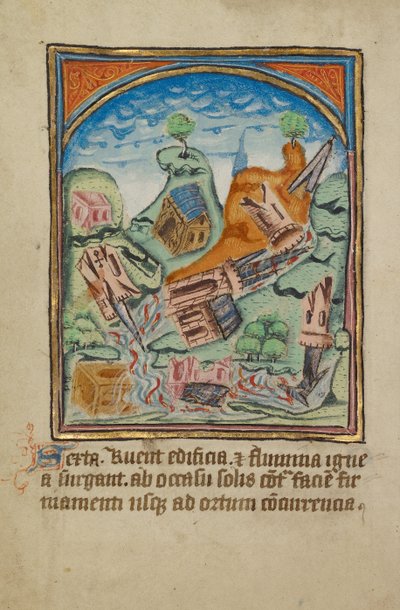 Sexta. Ruent edificia. et flumina igne
a surgant. ab occasu solis cōt͛ faciē fir
mamenti usq; ad ortum cōcurrencia.